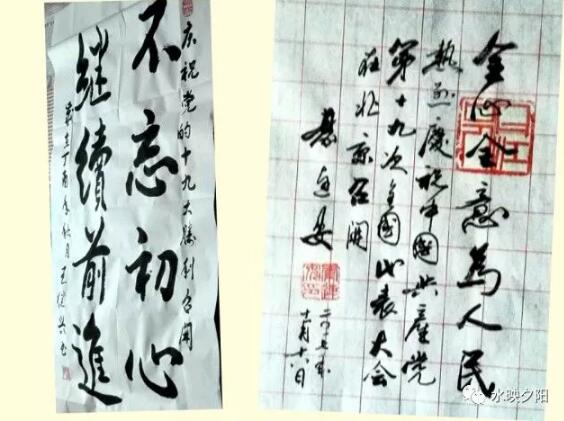 庆祝党的十九大胜利召开
不忘初心
继續前進
岁在丁酉年秋月王继兴书
全心全意為人民
热烈慶祝中國共產党
第十九次全國代表大会
在北京召開
二〇一七年
十月十八日
水映夕阳